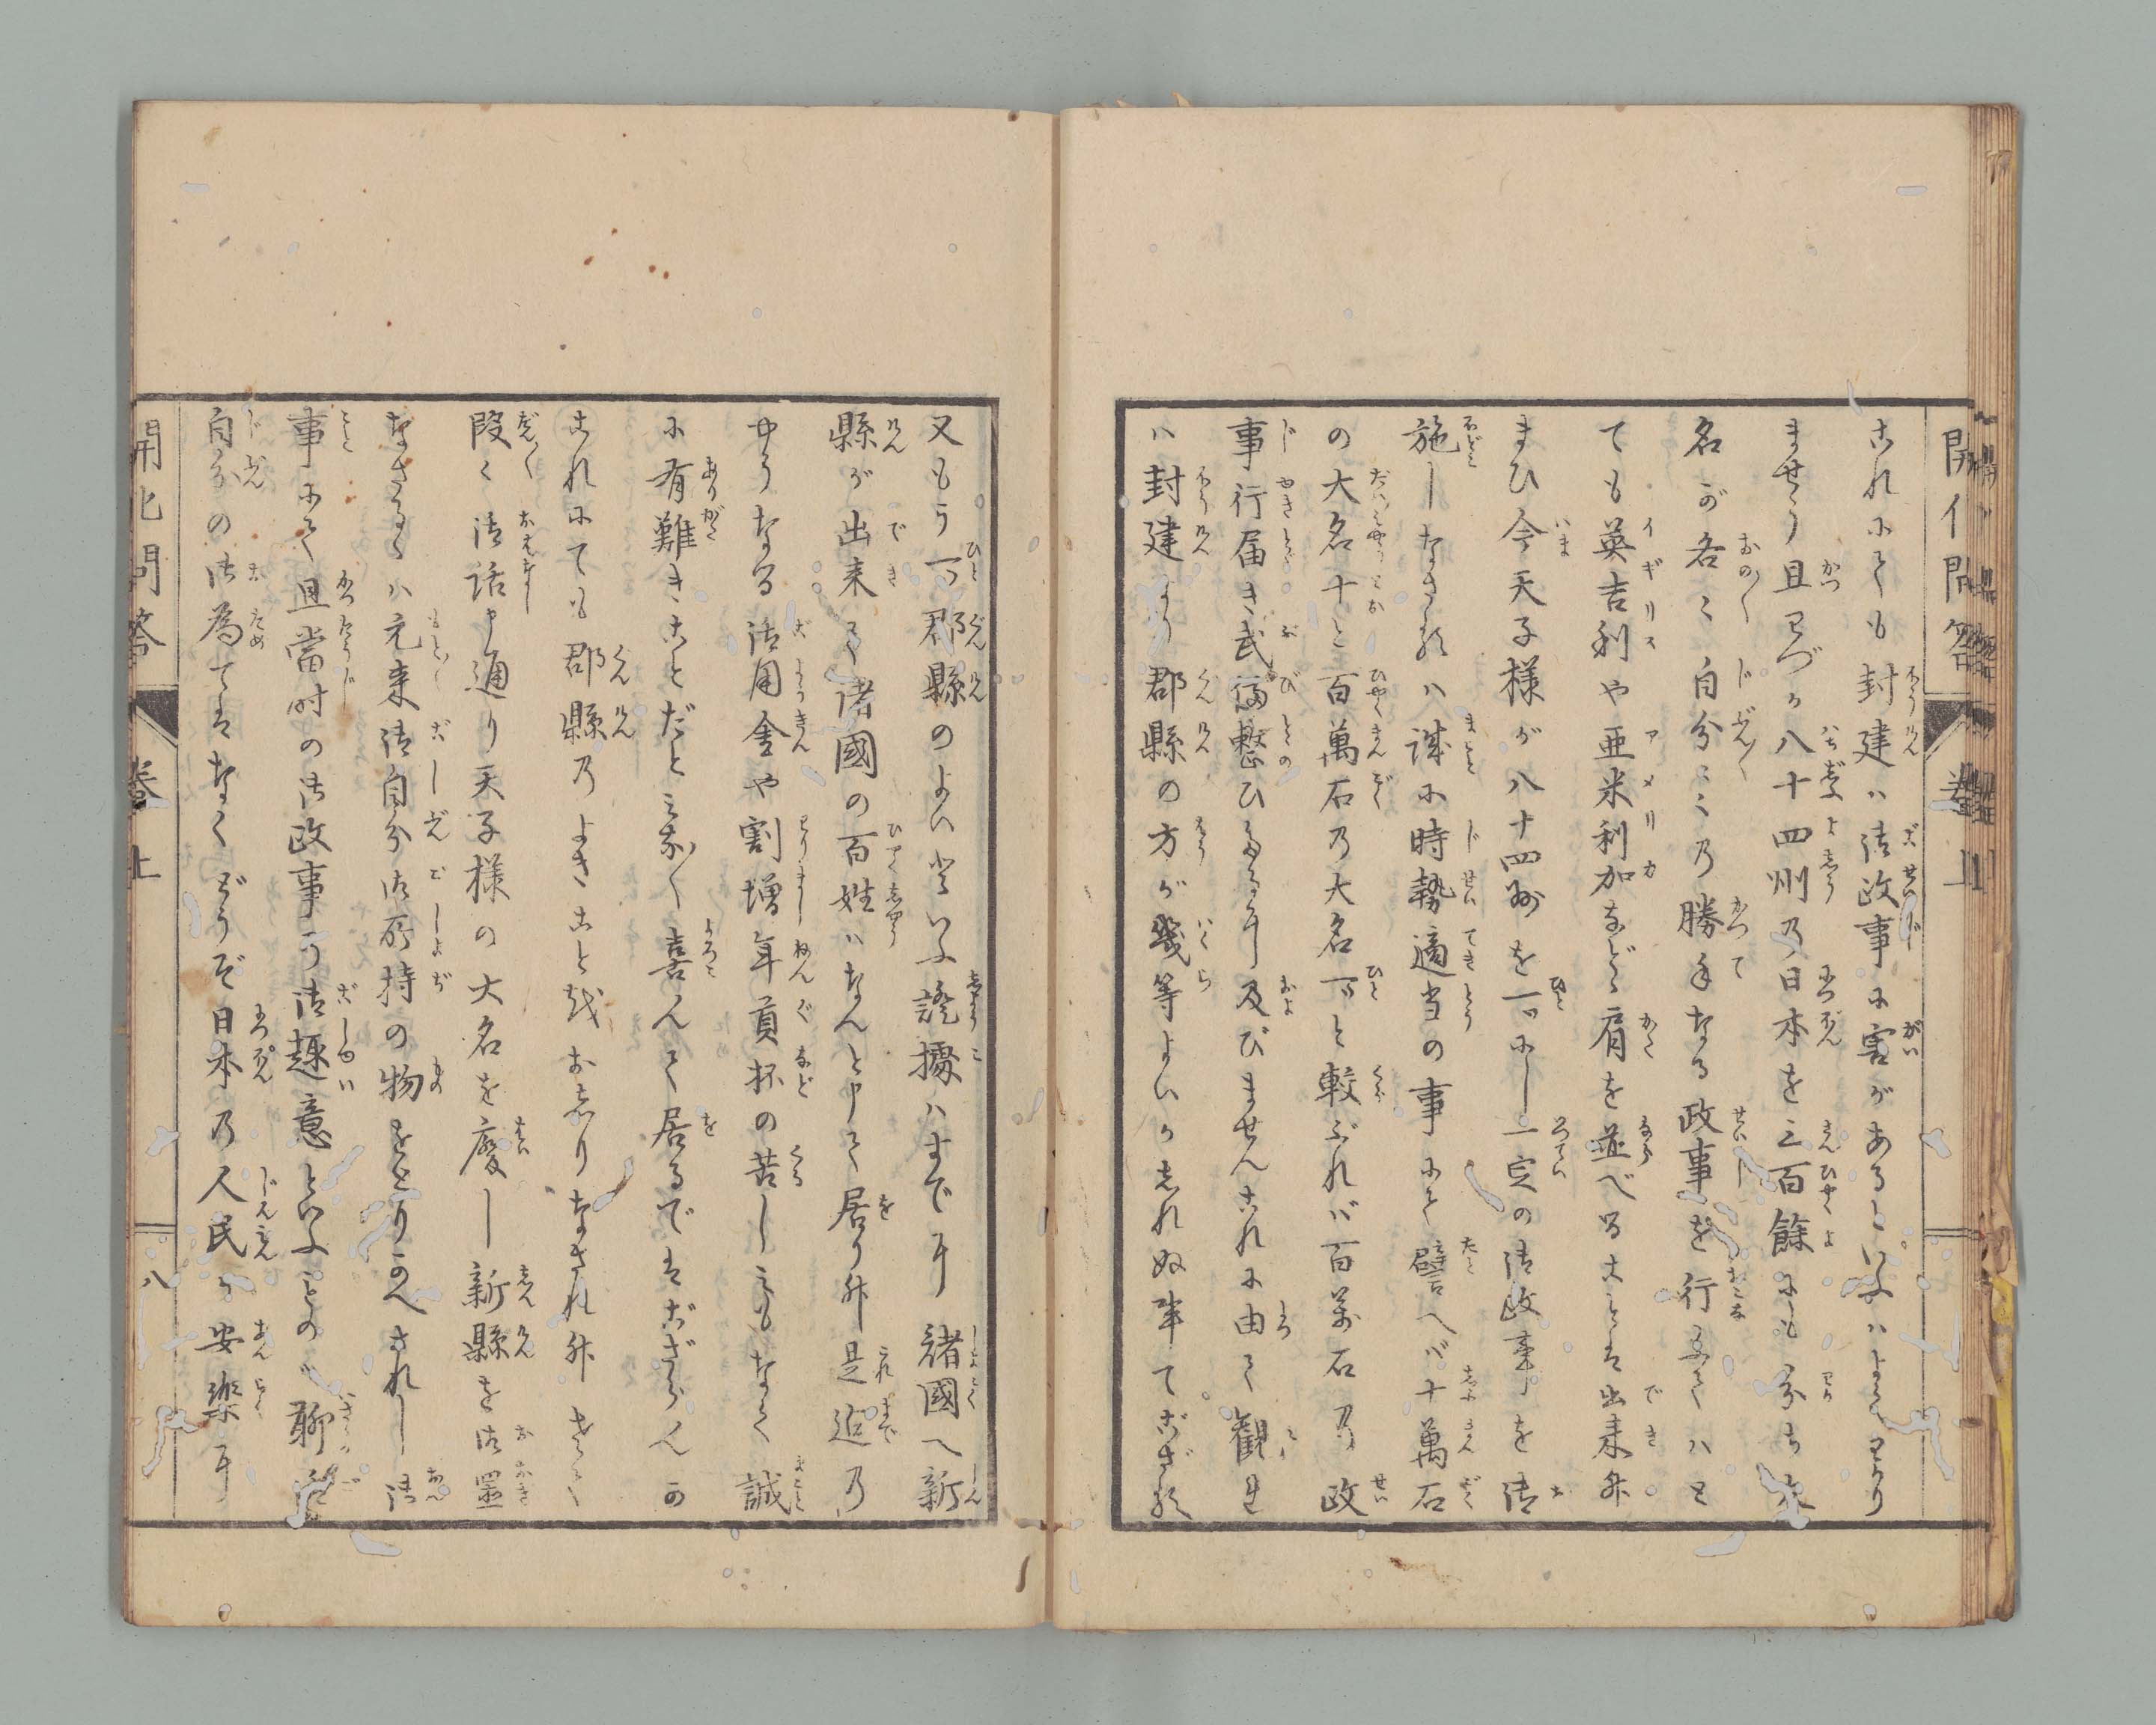 開化問答 卷上
これにても封建ハ御政事に害があるといふハよくわかり
ませう且わづか八十四州乃日本を三百餘にも分ち大
名が各〻自分〻〻乃勝手なる政事を行ふてハと
ても英吉利や亜米利加などゝ肩を並べることは出来升
まひ今天子様が八十四州を一ツにし一定の御政事を御
施しなさるハ誠に時勢適当の事にて譬へバ十萬石
の大名十と百萬石乃大名一ツと較ぶれバ百萬石乃政
事行届き武備整ひ
及びません これに由て觀
ハ封建より郡縣の方が幾等よいかしれぬ事でござる
又もう一ツ郡縣のよいといふ證據ハまで 諸國へ新
縣が出来て諸國の百姓ハなんと申て居り升是迄乃
やうなる御用金や割増年貢抔の苦しみもなく誠
に有難きことだとみな〳〵喜んで居るではござらんか
これにても郡縣乃よきことをおしりなされ升
段〻御話申通り天子様の大名を廢し新縣を御置
なさるゝハ元来御自分御所持の物をとりかへされし御
事にて且當時の御政事の御趣意といふものハ聊
自分の御為ではなくどうぞ日本乃人民が安樂
開化問答 卷上 八